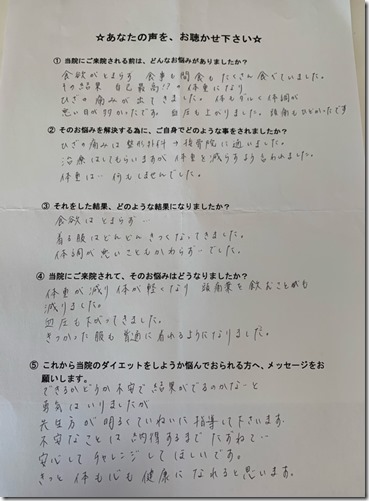 ☆あなたの声を、お聴かせ下さい☆
① 当院にご来院される前は、どんなお悩みがありましたか？
食欲がとまらず 食事も間食もたくさん食べていました。
その結果 自己最高!?の体重になり
ひざの痛みが出てきました。体もだるく体調が
悪い日が多かったです。血圧も上がりました。頭痛もひどかったです
② そのお悩みを解決する為に、ご自身でどのような事をされましたか？
ひざの痛みは整形外科→接骨院に通いました。
治療はしてもらいますが 体重を減らすよう言われました。
体重は… 何もしませんでした。
③ それをした結果、どのような結果になりましたか？
食欲はとまらず…
着る服はどんどんきつくなってきました。
体調が悪いこともかわらず…でした。
④ 当院にご来院されて、そのお悩みはどうなりましたか？
体重が減り体が軽くなり 頭痛薬を飲むことがも
減りました。
血圧も下がってきました。
きつかった服も普通に着れるようになりました。
⑤ これから当院のダイエットをしようか悩んでおられる方へ、メッセージをお
願いします。
できるかどうか不安で結果がでるのかな…と
勇気はいりましたが
先生方が明るくていねいに指導して下さいます。
不安なことは納得するまでたずねて…
安心してチャレンジしてほしいです。
きっと体も心も健康になれると思います。